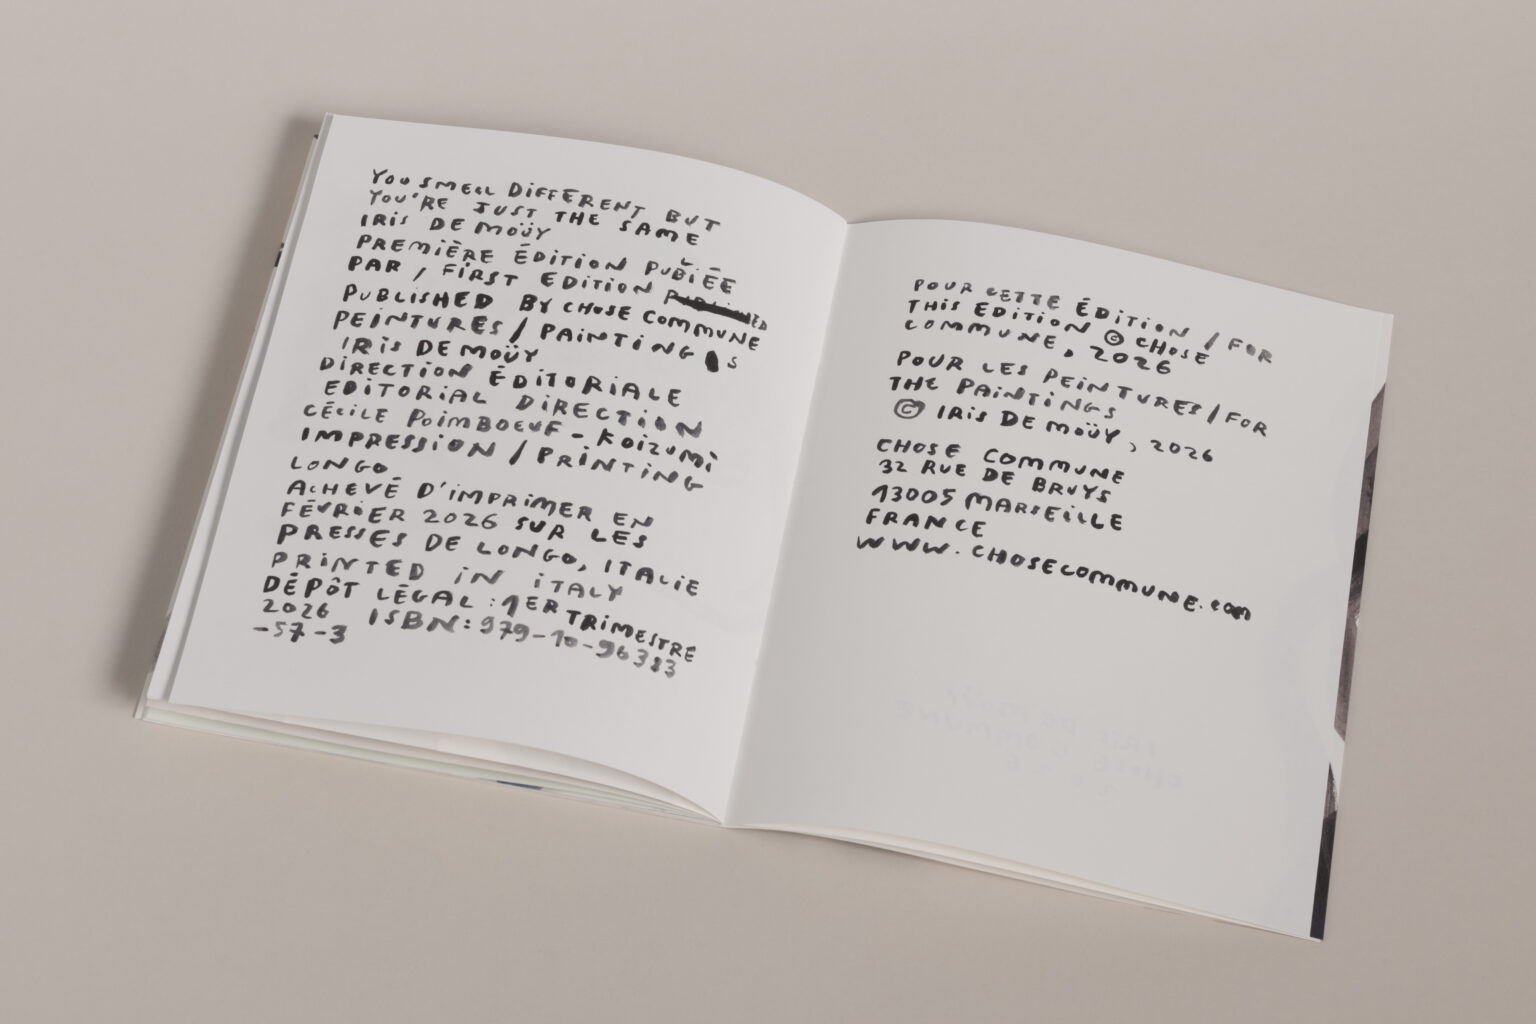 YOU SMELL DIFFERENT BUT
YOU'RE JUST THE SAME
IRIS DE MOÜY
PREMIÈRE ÉDITION PUBLIÉE
PAR / FIRST EDITION PUBLISHED
PUBLISHED BY CHOSE COMMUNE
PEINTURES / PAINTING S
IRIS DE MOÜY
DIRECTION ÉDITORIALE
EDITORIAL DIRECTION
CÉCILE POIMBOEUF - KOIZUMI
IMPRESSION / PRINTING
LONGO
ACHEVÉ D'IMPRIMER EN
FÉVRIER 2026 SUR LES
PRESSES DE LONGO, ITALIE
PRINTED IN ITALY
DÉPÔT LÉGAL : 1ER TRIMESTRE
2026 ISBN: 979-10-96383
-57-3
POUR CETTE ÉDITION / FOR
THIS EDITION © CHOSE
COMMUNE, 2026
POUR LES PEINTURES / FOR
THE PAINTINGS
© IRIS DE MOÜY, 2026
CHOSE COMMUNE
32 RUE DE BRUYS
13005 MARSEILLE
FRANCE
WWW.CHOSECOMMUNE.COM